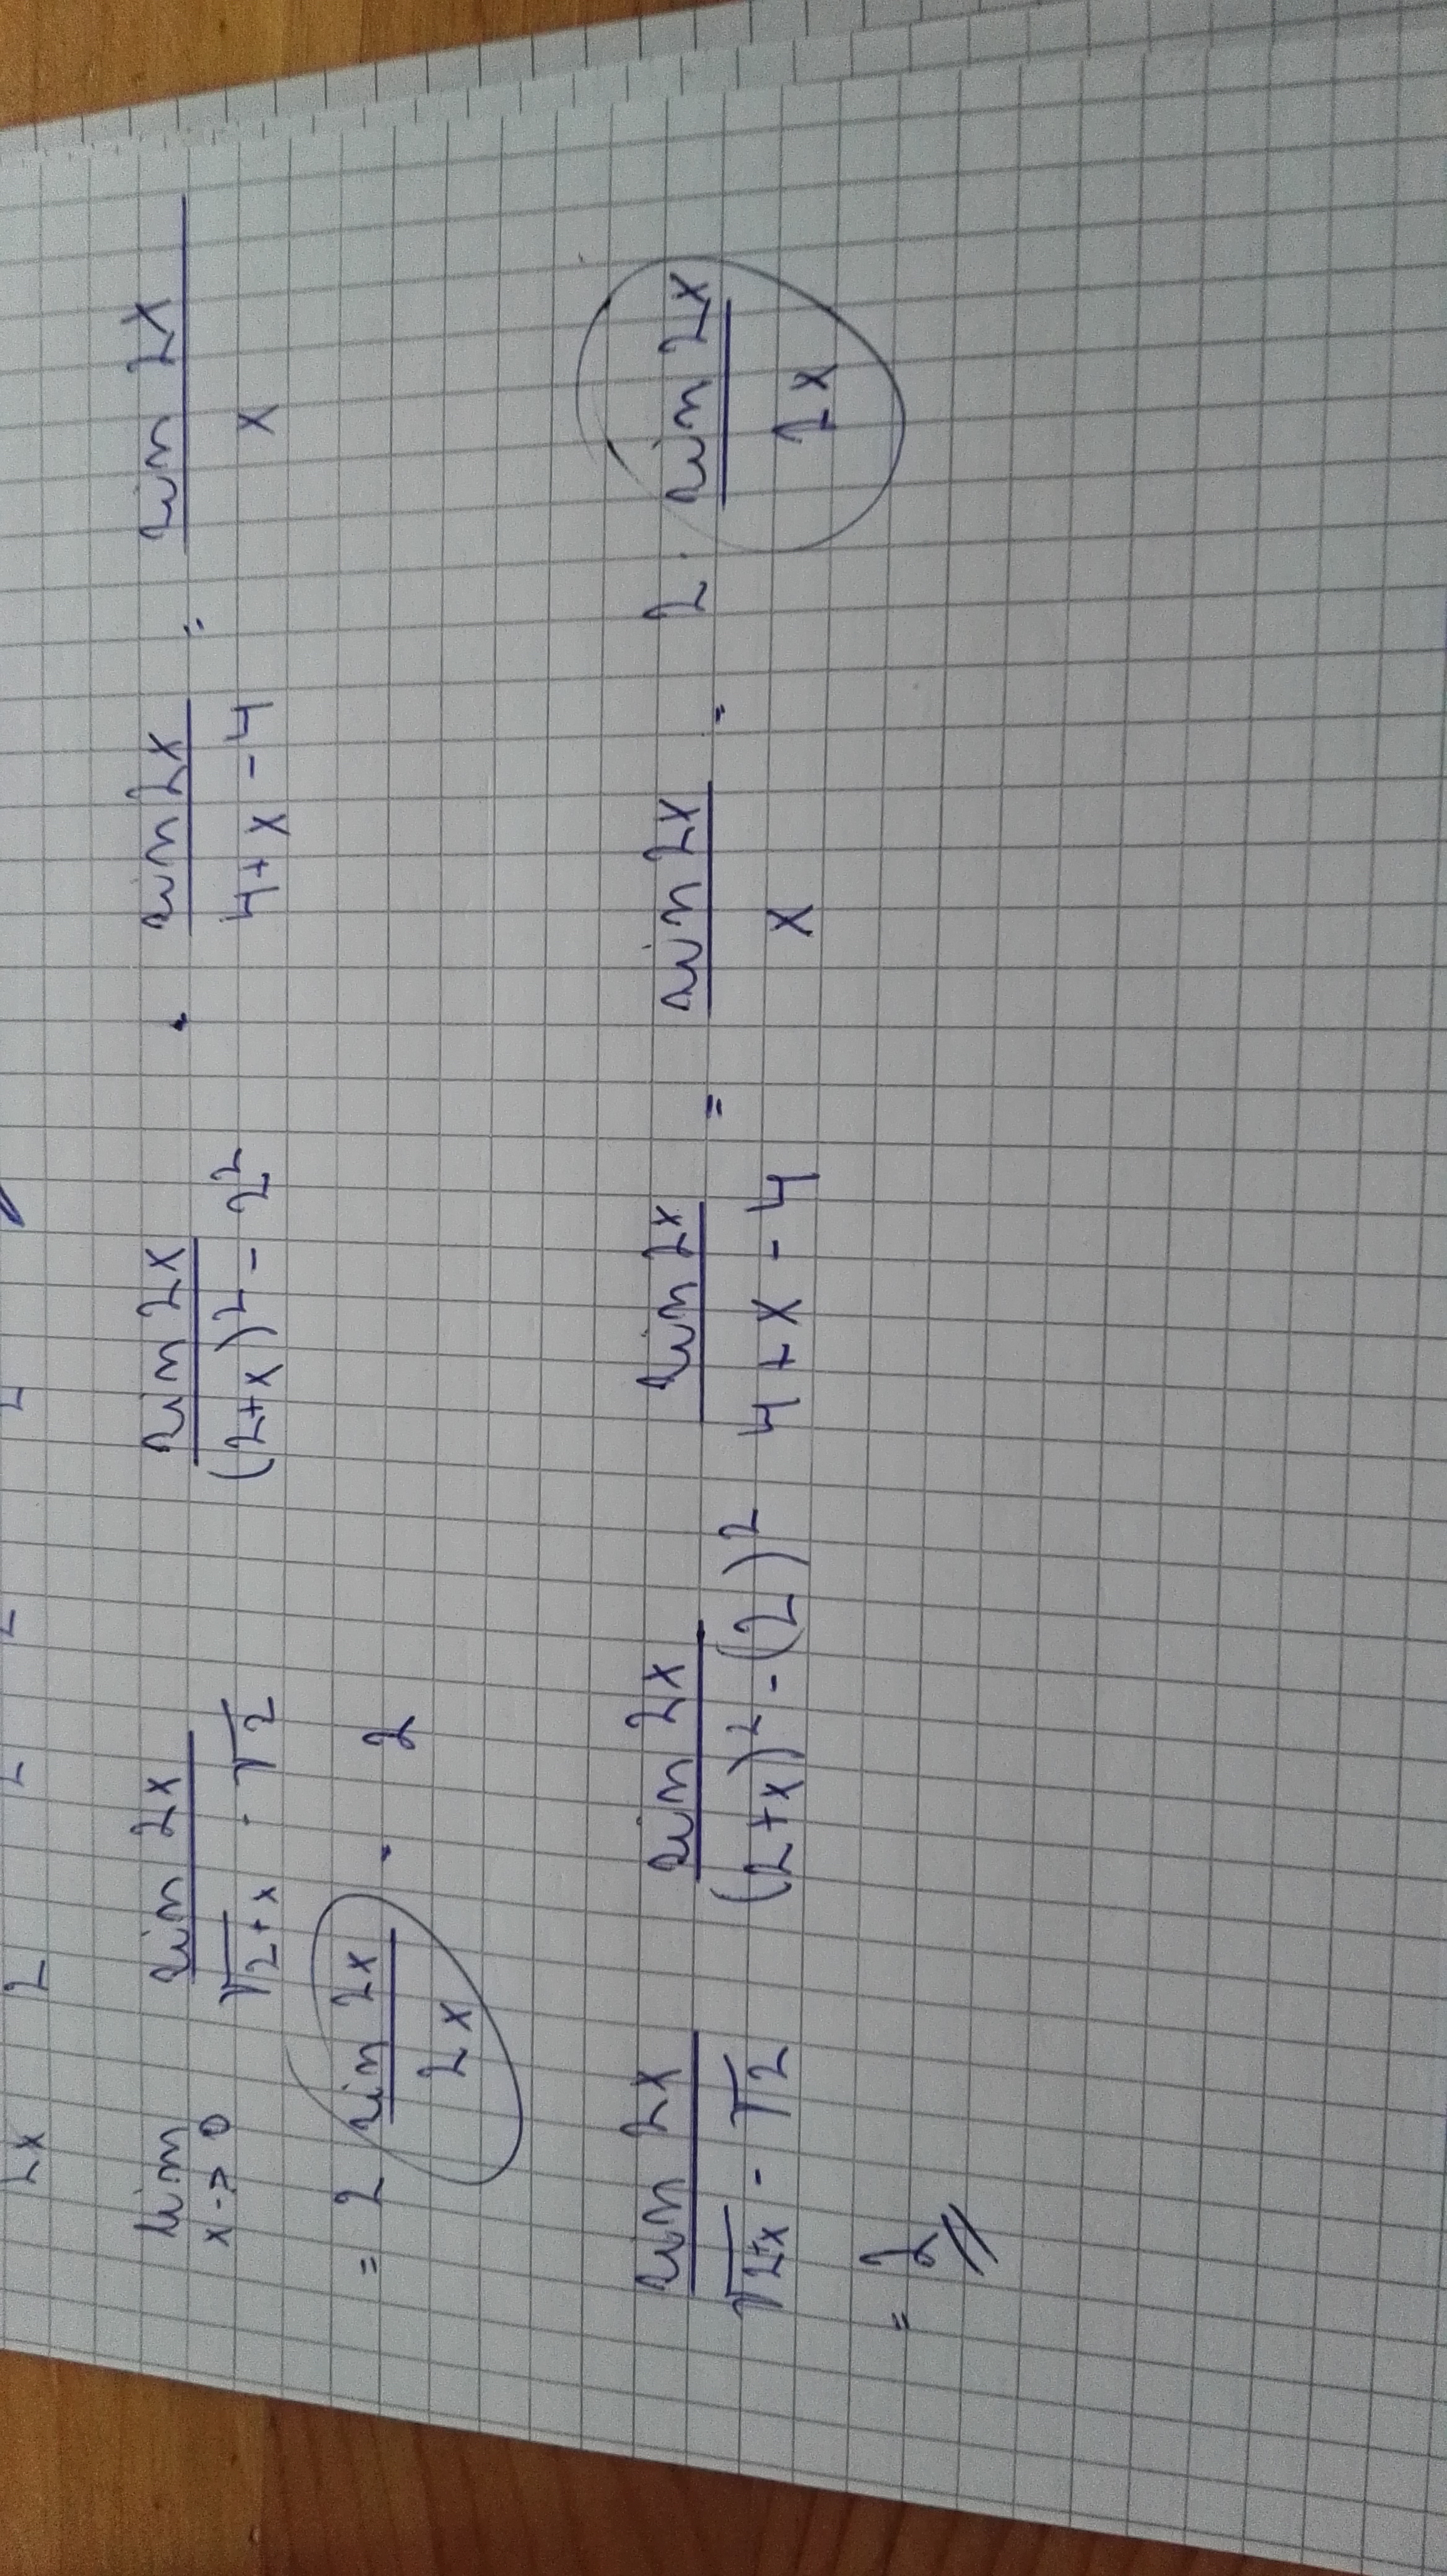 lim sin 2x / √2+x - √2 sin 2x / (2+x)² - 2² · sin 2x / 4+x-4 = sin 2x / x
x->0
= 2 sin 2x / 2x · 2
sin 2x / √2+x - √2 sin 2x / (2+x)² - (2)² sin 2x / 4+x-4 = sin 2x / x = 2 · sin 2x / 2x
= 2